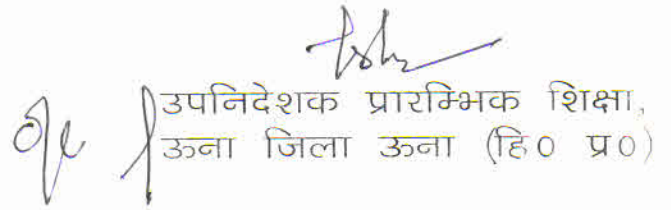 उपनिदेशक प्रारम्भिक शिक्षा,
ऊना जिला ऊना (हि० प्र०)